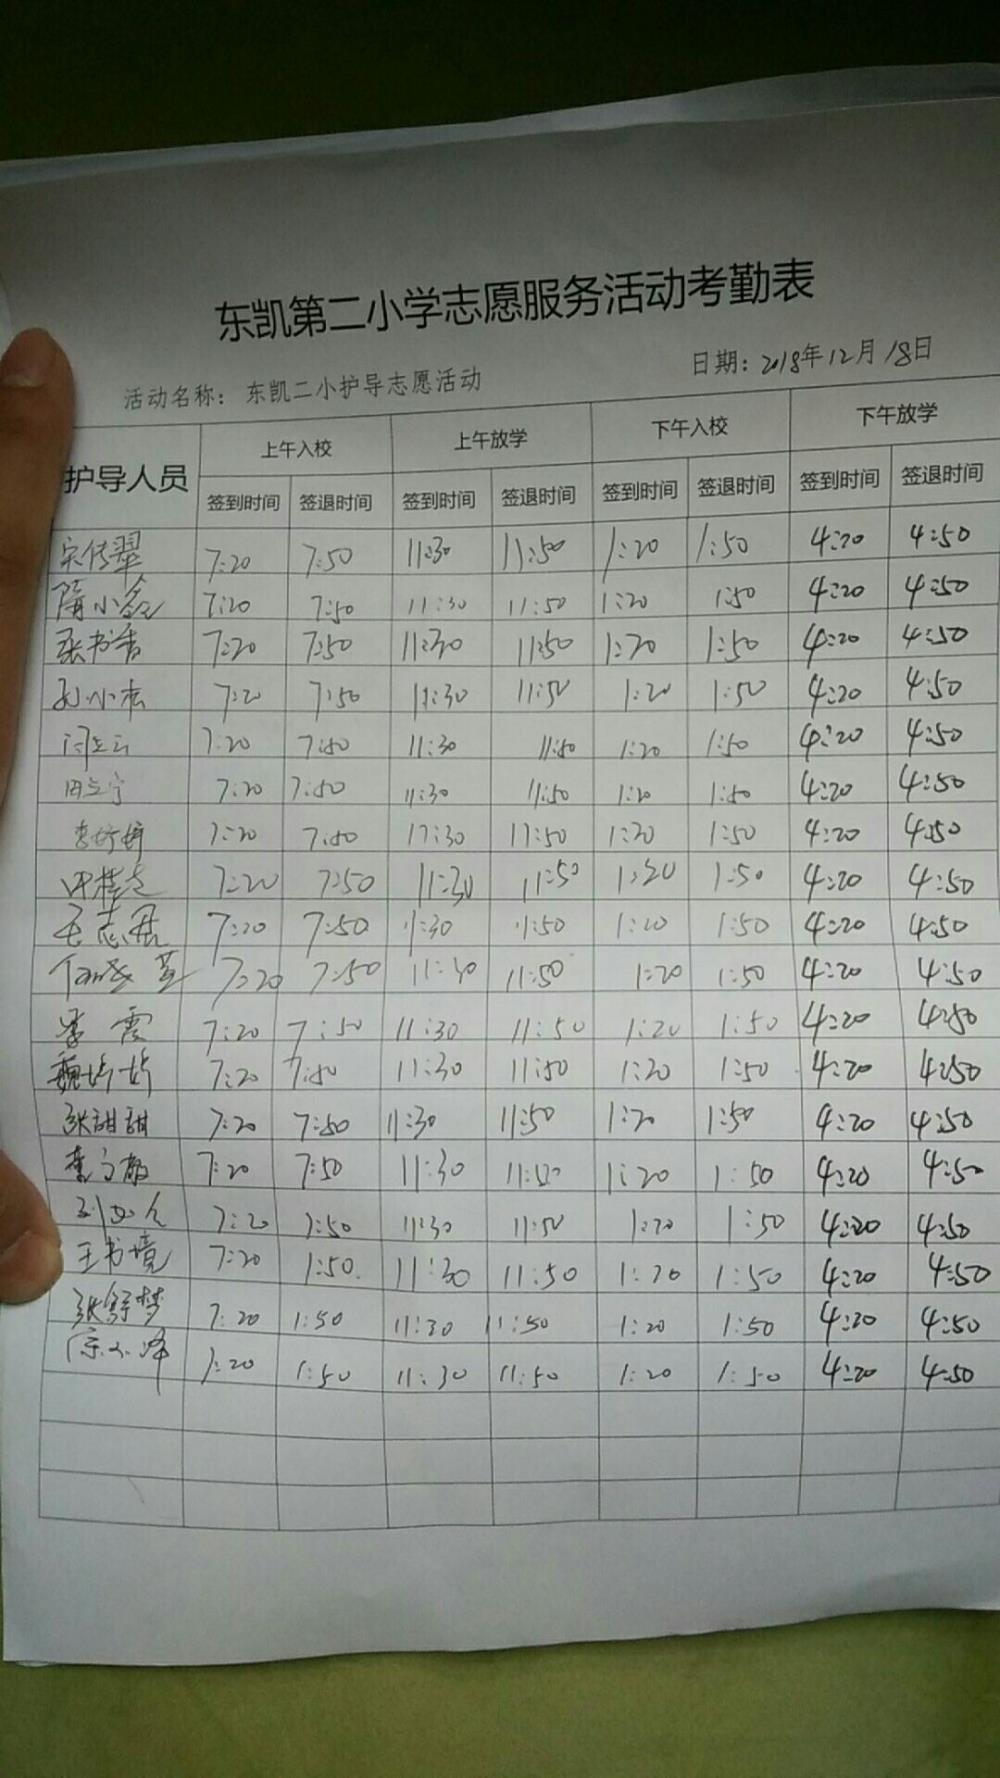 东凯第二小学志愿服务活动考勤表
活动名称：东凯二小护导志愿活动 日期：2018年12月18日
护导人员 上午入校 上午放学 下午入校 下午放学
签到时间 签退时间 签到时间 签退时间 签到时间 签退时间 签到时间 签退时间
宋传翠 7:20 7:50 11:30 11:50 1:20 1:50 4:20 4:50
隋小 7:20 7:50 11:30 11:50 1:20 1:50 4:20 4:50
张书香 7:20 7:50 11:30 11:50 1:20 1:50 4:20 4:50
孙小松 7:20 7:50 11:30 11:50 1:20 1:50 4:20 4:50
闫立云 7:20 7:50 11:30 11:50 1:20 1:50 4:20 4:50
田立宁 7:20 7:50 11:30 11:50 1:20 1:50 4:20 4:50
李婷婷 7:20 7:50 11:30 11:50 1:20 1:50 4:20 4:50
7:20 7:50 11:30 11:50 1:20 1:50 4:20 4:50
王志君 7:20 7:50 11:30 11:50 1:20 1:50 4:20 4:50
7:20 7:50 11:30 11:50 1:20 1:50 4:20 4:50
李霞 7:20 7:50 11:30 11:50 1:20 1:50 4:20 4:50
魏婷婷 7:20 7:50 11:30 11:50 1:20 1:50 4:20 4:50
张甜甜 7:20 7:50 11:30 11:50 1:20 1:50 4:20 4:50
李文静 7:20 7:50 11:30 11:50 1:20 1:50 4:20 4:50
7:20 1:50 11:30 11:50 1:20 1:50 4:20 4:50
王书境 7:20 1:50 11:30 11:50 1:20 1:50 4:20 4:50
张舒梦 7:20 1:50 11:30 11:50 1:20 1:50 4:20 4:50
1:20 1:50 11:30 11:50 1:20 1:50 4:20 4:50